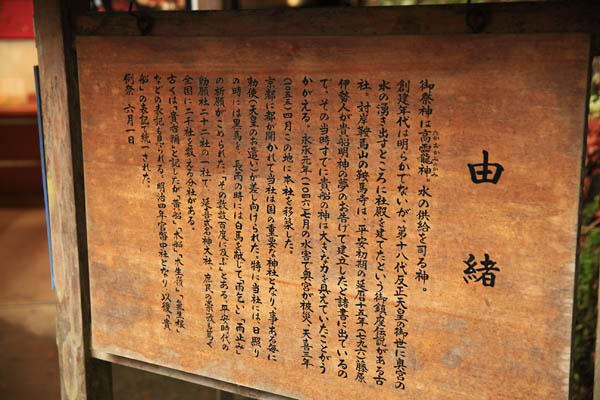 由緒
御祭神は高龗神。水の供給を司る神。
創建年代は明らかでないが、第十八代反正天皇の御世に奥宮の
水の湧き出すところに社殿を建てたという御鎮座伝説がある古
社。対岸鞍馬山の鞍馬寺は、平安初期の延暦十五年(七九六)藤原
伊勢人が貴船明神の夢のお告げで建立したと諸書に出ているの
で、その当時すでに貴船の神は大きな力を具えていたことがう
かがえる。永承元年(一〇四六)七月の水害で奥宮が被災、天喜三年
(一〇五五)四月この地に本社を移築した。
京都に都が開かれて当社は国の重要な神社となり、事ある毎に
勅使(天皇のお遣い)が差し向けられた。特に当社には、日照り
の時には黒馬を、長雨の時には白馬を献じて「雨乞い」「雨止み」
の祈願がこめられた。「その数数百度に及ぶ」とある。平安時代の
勅願社二十二社の一社で、延喜式名神大社、庶民の崇敬も篤く
全国に二千社を数える分社がある。
古くは「貴布禰」と記したが「黄船」「木船」「木生嶺」「気生根」
などの表記も見られる。明治四年官幣中社となり、以後「貴
船」の表記で統一された。
例祭 六月一日